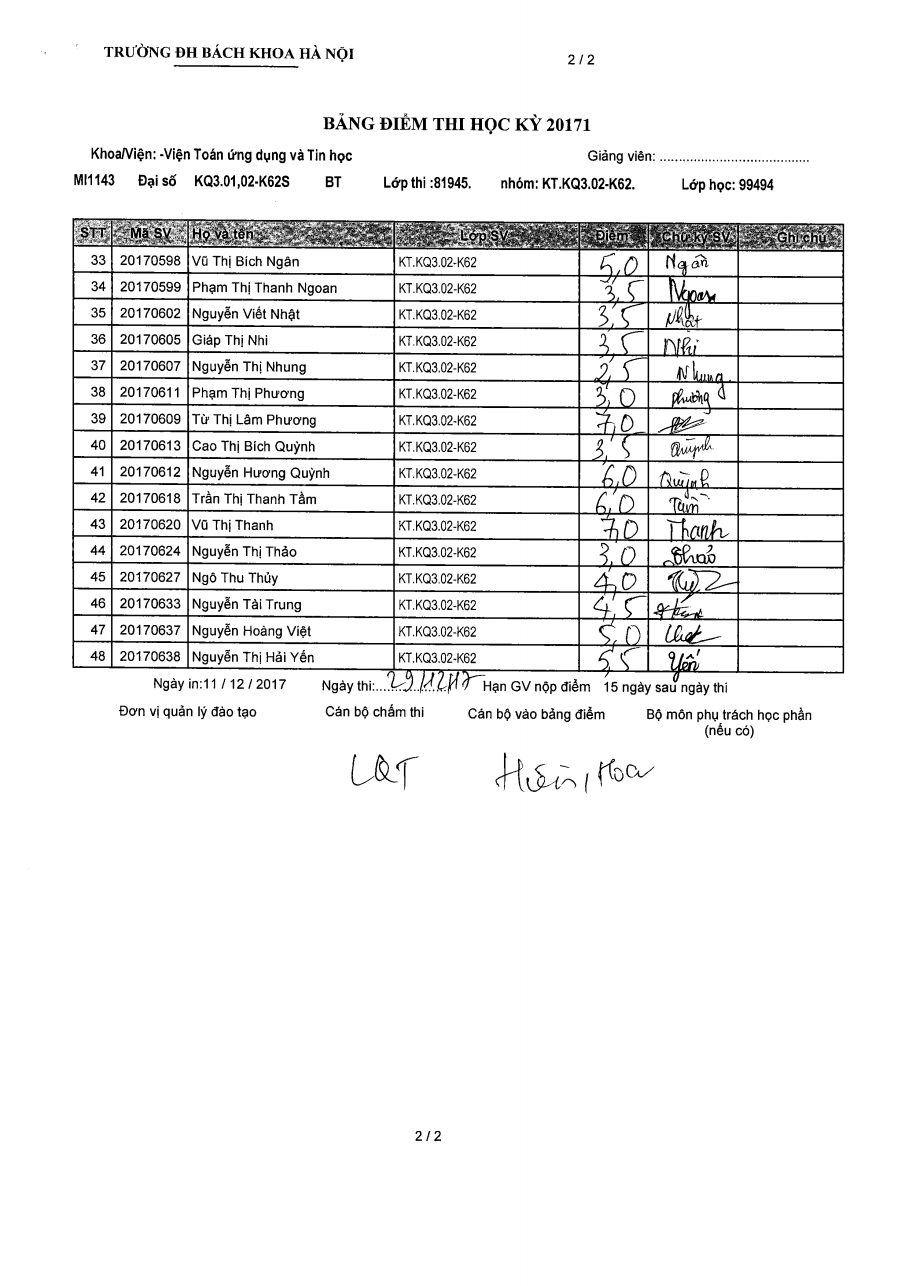 TRƯỜNG ĐH BÁCH KHOA HÀ NỘI 2 / 2
BẢNG ĐIỂM THI HỌC KỲ 20171
Khoa/Viện: -Viện Toán ứng dụng và Tin học Giảng viên: ........................................
MI1143 Đại số KQ3.01,02-K62S BT Lớp thi :81945. nhóm: KT.KQ3.02-K62. Lớp học: 99494
STT Mã SV Họ và tên Lớp SV Điểm Chữ ký SV Ghi chú
33 20170598 Vũ Thị Bích Ngân KT.KQ3.02-K62 5,0 Ngân
34 20170599 Phạm Thị Thanh Ngoan KT.KQ3.02-K62 3,5 Ngoan
35 20170602 Nguyễn Viết Nhật KT.KQ3.02-K62 3,5 Nhật
36 20170605 Giáp Thị Nhi KT.KQ3.02-K62 3,5 Nhi
37 20170607 Nguyễn Thị Nhung KT.KQ3.02-K62 2,5 Nhung
38 20170611 Phạm Thị Phương KT.KQ3.02-K62 3,0 Phương
39 20170609 Từ Thị Lâm Phương KT.KQ3.02-K62 7,0
40 20170613 Cao Thị Bích Quỳnh KT.KQ3.02-K62 3,5 Quỳnh
41 20170612 Nguyễn Hương Quỳnh KT.KQ3.02-K62 6,0 Quỳnh
42 20170618 Trần Thị Thanh Tầm KT.KQ3.02-K62 6,0 Tầm
43 20170620 Vũ Thị Thanh KT.KQ3.02-K62 7,0 Thanh
44 20170624 Nguyễn Thị Thảo KT.KQ3.02-K62 3,0 Thảo
45 20170627 Ngô Thu Thủy KT.KQ3.02-K62 4,0
46 20170633 Nguyễn Tài Trung KT.KQ3.02-K62 4,5
47 20170637 Nguyễn Hoàng Việt KT.KQ3.02-K62 5,0
48 20170638 Nguyễn Thị Hải Yến KT.KQ3.02-K62 5,5 Yến
Ngày in:11 / 12 / 2017 Ngày thi:...29/12/17 Hạn GV nộp điểm 15 ngày sau ngày thi
Đơn vị quản lý đào tạo Cán bộ chấm thi Cán bộ vào bảng điểm Bộ môn phụ trách học phần
(nếu có)
LQT Hiền, Hoa
2 / 2